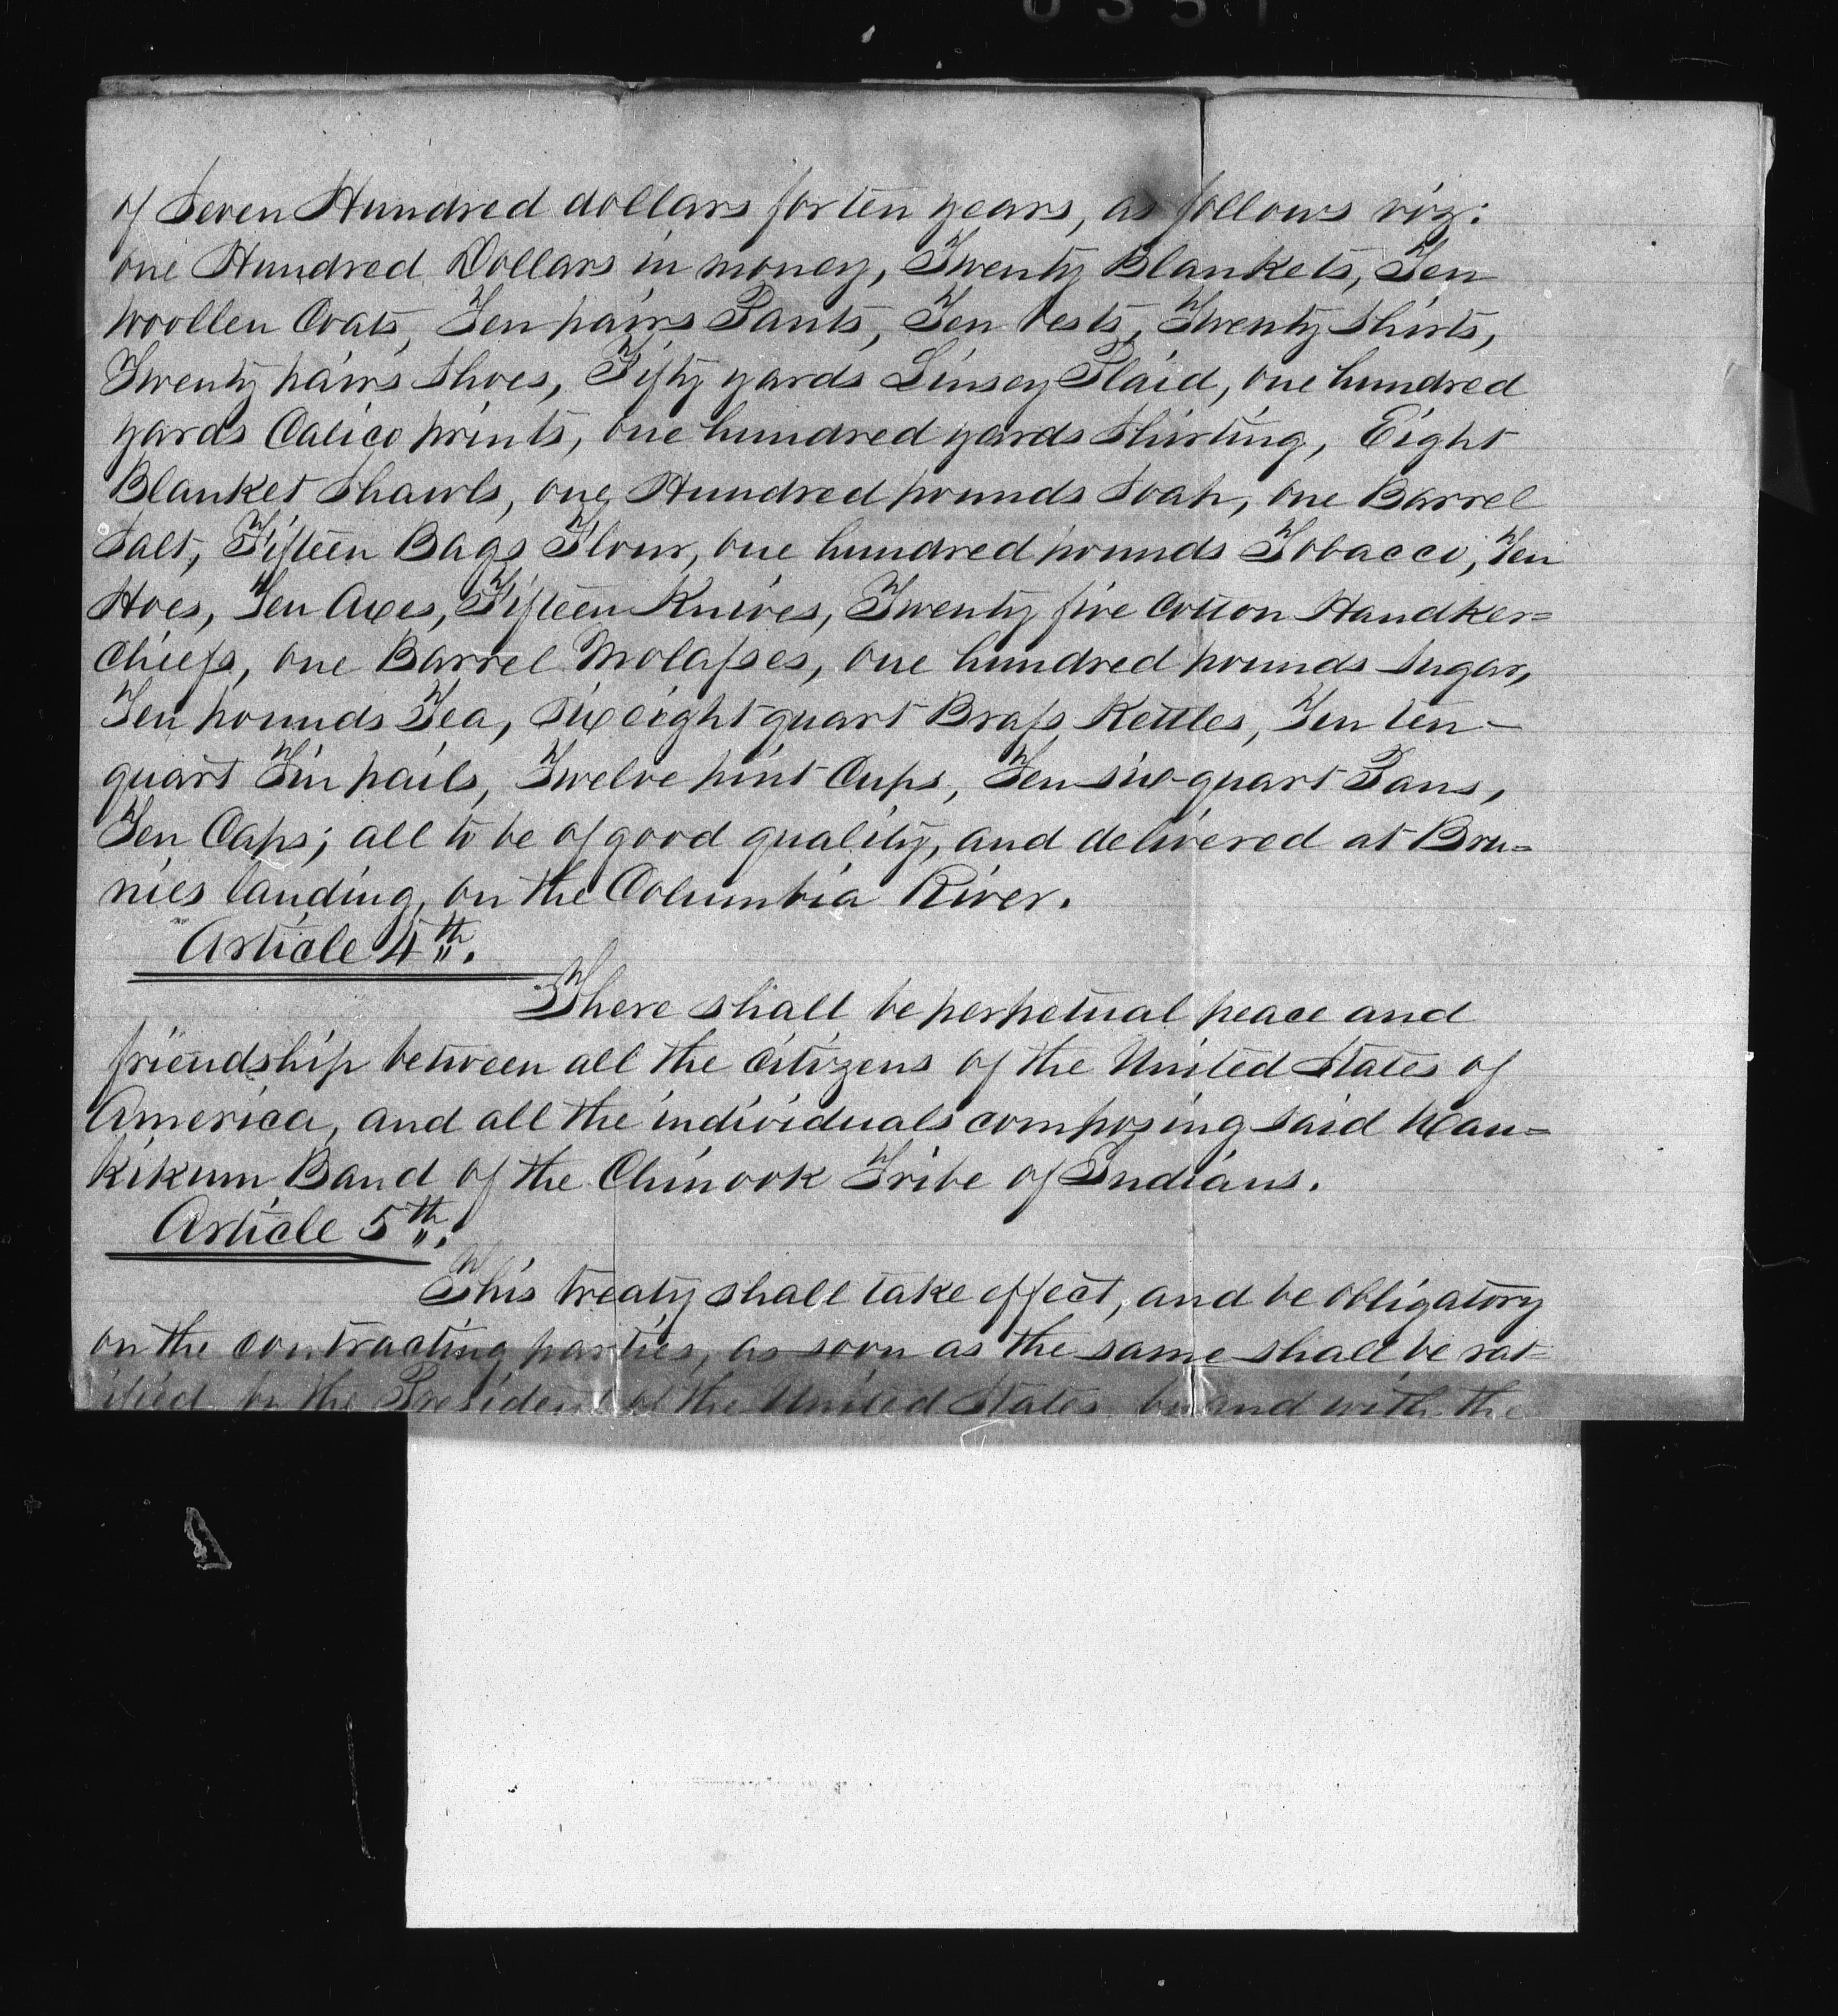 of Seven Hundred dollars for ten years, as follows viz:
one Hundred Dollars in money, Twenty Blankets, Ten
woollen Coats, Ten pairs Pants, Ten Vests, Twenty Shirts,
Twenty pairs Shoes, Fifty yards Linsey Plaid, one hundred
yards Calico prints, one hundred yards Shirting, Eight
Blanket Shawls, one Hundred pounds Soap, one Barrel
Salt, Fifteen Bags Flour, one hundred pounds Tobacco, Ten
Hoes, Ten Axes, Fifteen Knives, Twenty five Cotton Handker=
chiefs, one Barrel Molasses, one hundred pounds Sugar,
Ten pounds Tea, Six eight quart Brass Kettles, Ten ten-
quart Tin pails, Twelve pint Cups, Ten six-quart Pans,
Ten Caps; all to be of good quality, and delivered at Bru=
nies landing, on the Columbia River.
Article 4th.
There shall be perpetual peace and
friendship between all the citizens of the United States of
America, and all the individuals composing said Wau=
kikum Band of the Chinook Tribe of Indians.
Article 5th.
This treaty shall take effect, and be obligatory
on the contracting parties, as soon as the same shall be rat=
ified by the President of the United States, by and with the